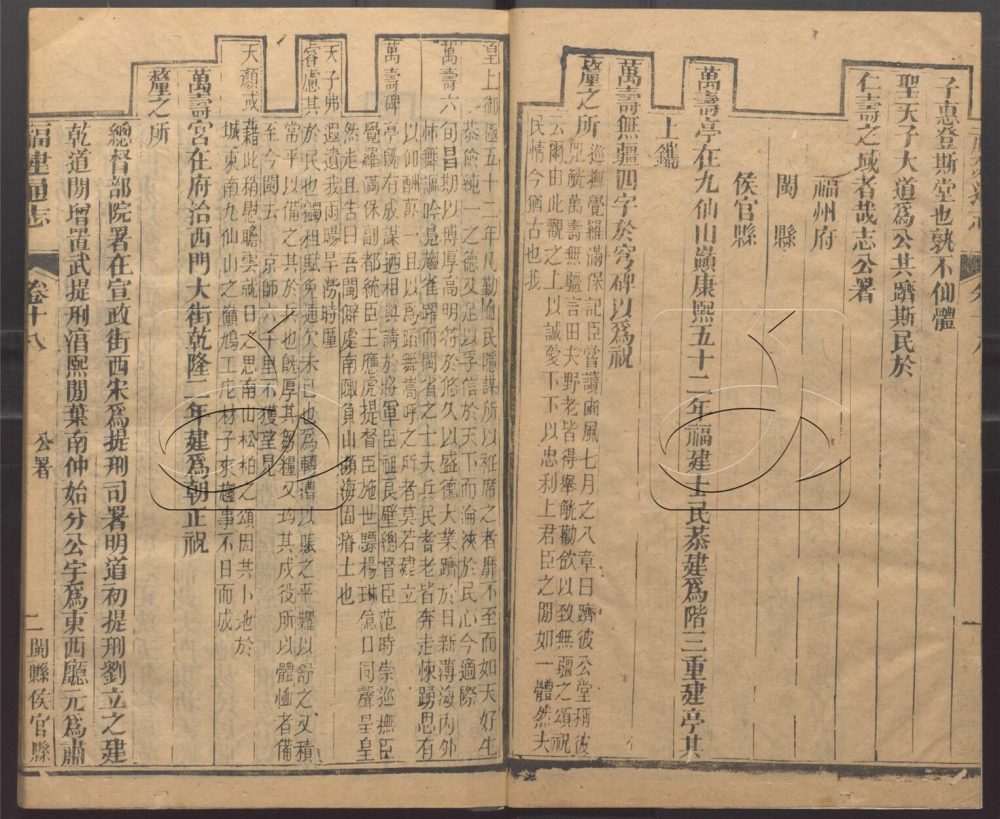 子惠登斯堂也孰不仙體
聖天子大道為公共躋斯民於
仁壽之域者哉志公署
福州府
閩縣
侯官縣
萬壽亭在九仙山巔康熙五十二年福建士民恭建為階三重建亭其
上鐫
萬壽無疆四字於穹碑以為祝
釐之所
巡撫覺羅滿保記臣嘗讀豳風七月之八章曰躋彼公堂稱彼
兕觥萬壽無疆言田夫野老皆得舉觥勸飲以致無疆之頌祝
云爾由此觀之上以誠愛下下以忠利上君臣之間如一體然夫
民情今猶古也我
皇上御極五十二年凡勤恤民隱謀所以袵席之者靡不至而如天好生
恭儉純一之德又足以孚信於天下而淪浹於民心今適際
萬壽六旬昌期以博厚高明符於悠久以盛德大業躋於日新溥海內外
林舞謳吟鳧藻雀躍而閩省之士夫兵民耆老皆奔走悚踴思有
以仰酬萬一且以為蹈舞嵩呼之所者莫若建立
萬壽碑亭旣有成謀迺相與請於將軍臣祖良璧總督臣范時崇巡撫臣
覺羅滿保副都統臣王應虎提督臣施世驃楊琳僉口同聲皇皇
然走且告曰吾閩僻處南陬負山瀕海固瘠土也
天子弗遐遺我雨暘旱澇時厪
睿慮其於民也蠲租賦免逋欠未已也為轉漕以賑之平糶以舒之又積
常平以備之其於兵也旣厚其芻糧又均其戍役所以體恤者備
至今閩去京師六千里不獲望見
天顏或藉此稍慰瞻雲就日之思南山松柏之頌因共卜地於
城東南九仙山之巔鳩工庀材子來趨事不日而成
萬壽宮在府治西門大街乾隆二年建為朝正祝
釐之所
總督部院署在宣政街西宋為提刑司署明道初提刑劉立之建
乾道間增置武提刑淳熙間葉南仲始分公宇為東西廳元為肅
福建通志
卷十八
公署
二
閩縣侯官縣